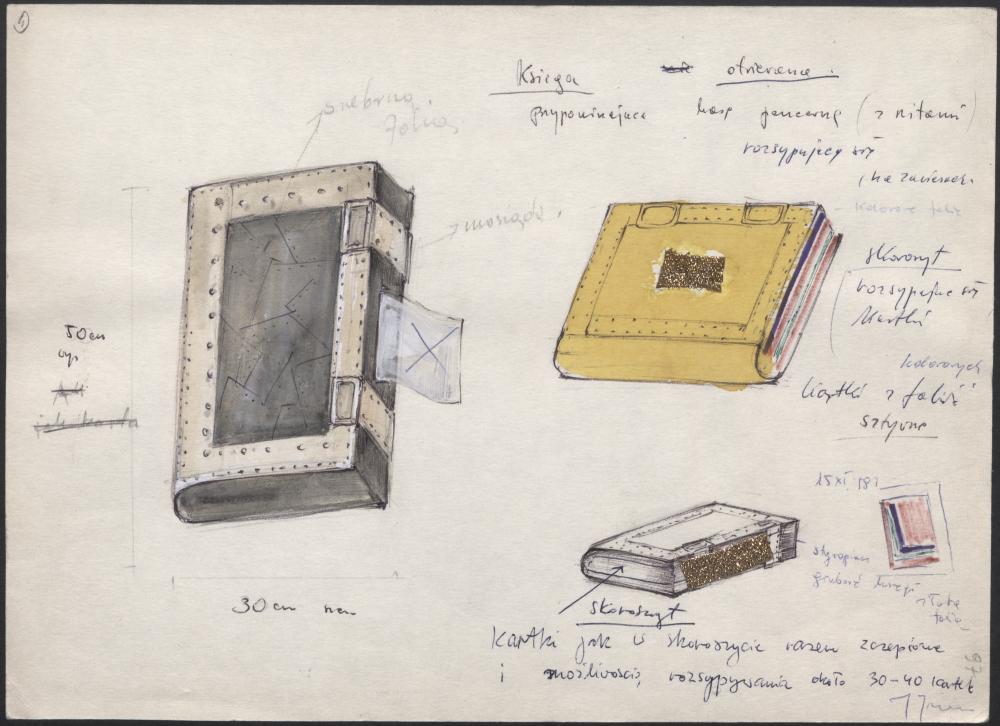 Księga otwierana.
przypominająca kasę pancerną (z nitami)
rozsypujący się
(na zawiasach.
srebrna
folia
kolorowe folie
mosiądz.
skoroszyt
rozsypujące się
kartki
50 cm
wys
kolorowych
kartki z folii
sztywne
15 XI 81
styropian
grubość księgi
złota
folia
30 cm
skoroszyt
kartki jak w skoroszycie razem zaczepione
i możliwością rozsypywania około 30-40 kartek